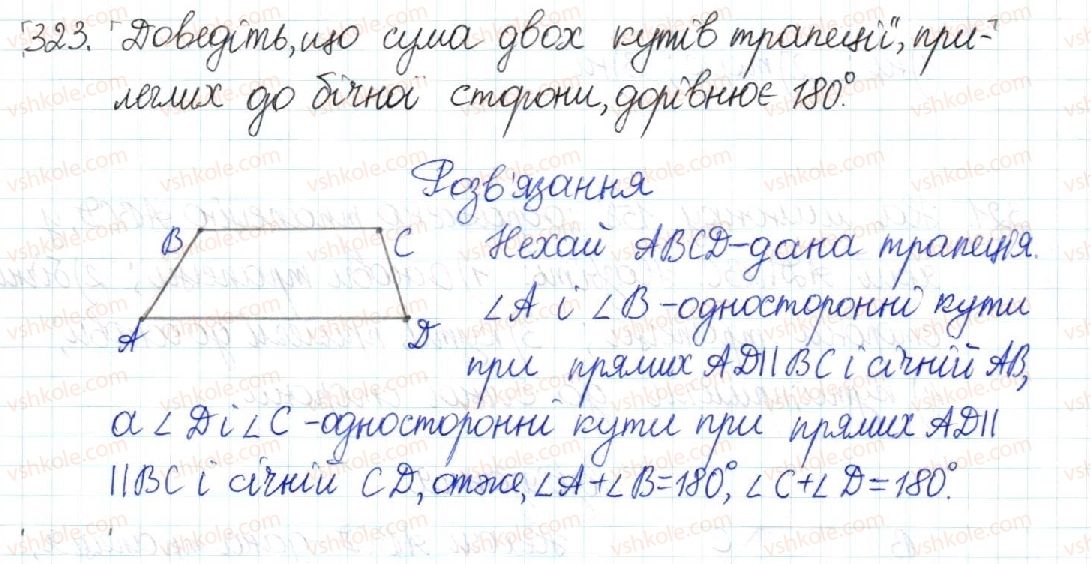 323. Доведіть, що сума двох кутів трапеції, при-
леглих до бічної сторони, дорівнює 180°.
Розв'язання
B C Нехай ABCD - дана трапеція.
∠A і ∠B - односторонні кути
A D
при прямих AD||BC і січній AB,
а ∠D і ∠C - односторонні кути при прямих AD||
||BC і січній CD, отже, ∠A+∠B=180°, ∠C+∠D=180°.